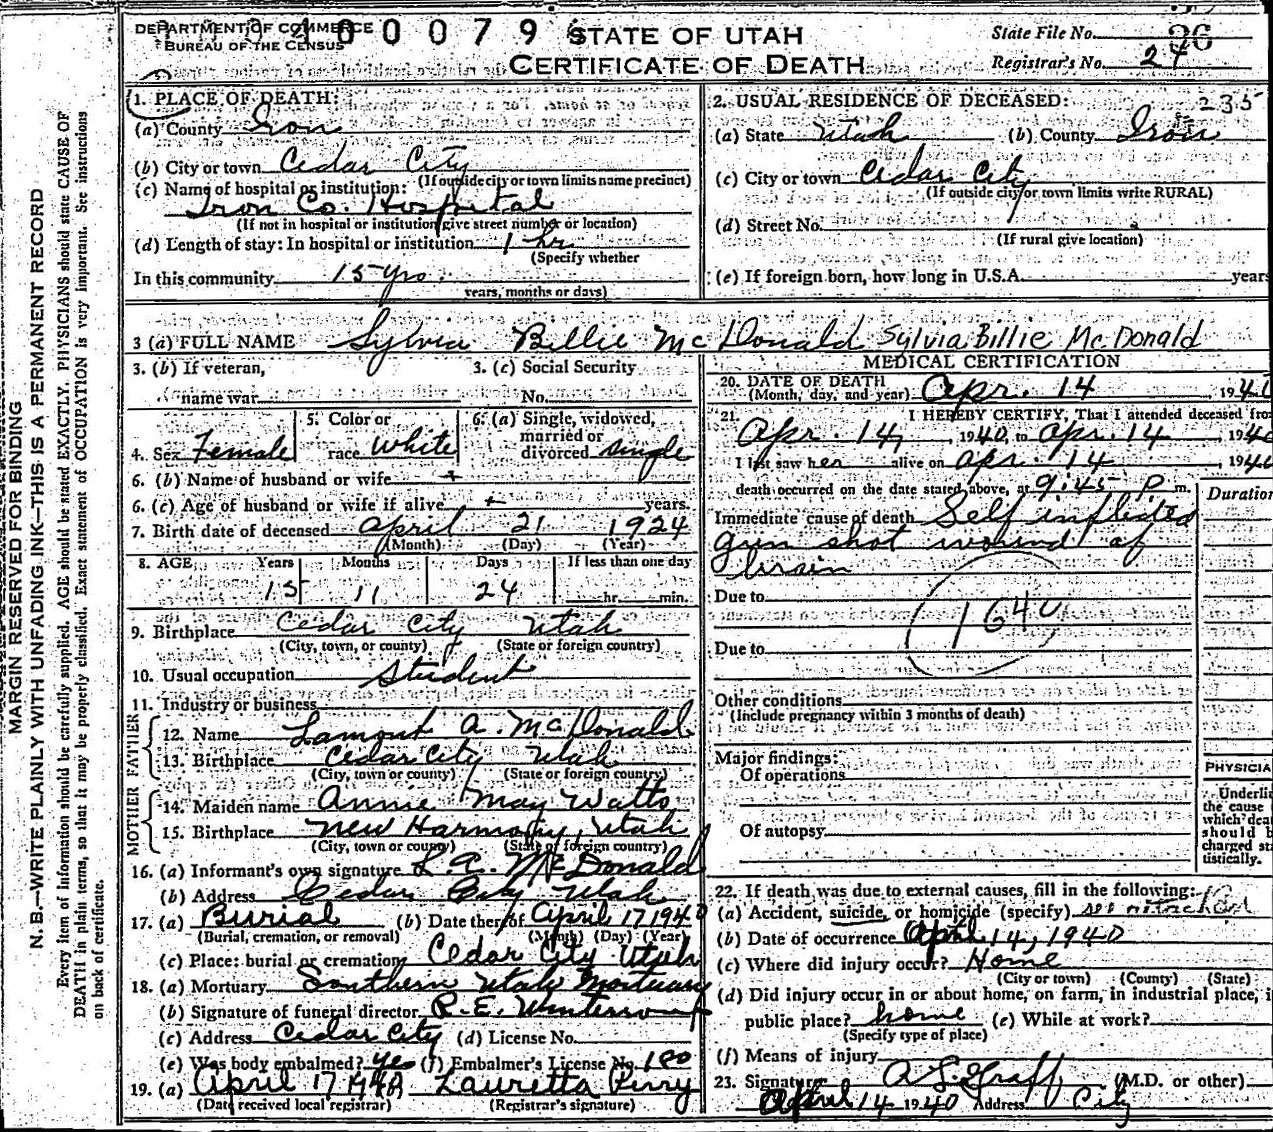 DEPARTMENT OF COMMERCE
BUREAU OF THE CENSUS
400079
STATE OF UTAH
CERTIFICATE OF DEATH
State File No. 26
Registrar's No. 24
MARGIN RESERVED FOR BINDING
N. B.—WRITE PLAINLY WITH UNFADING INK—THIS IS A PERMANENT RECORD
Every item of information should be carefully supplied. AGE should be stated EXACTLY. PHYSICIANS should state CAUSE OF
DEATH in plain terms, so that it may be properly classified. Exact statement of OCCUPATION is very important. See instructions
on back of certificate.
1. PLACE OF DEATH:
(a) County Iron
(b) City or town Cedar City
(If outside city or town limits name precinct)
(c) Name of hospital or institution:
Iron Co. Hospital
(If not in hospital or institution give street number or location)
(d) Length of stay: In hospital or institution 1 hr.
(Specify whether
In this community 15 yrs.
years, months or days)
2. USUAL RESIDENCE OF DECEASED: 235
(a) State Utah (b) County Iron
(c) City or town Cedar City
(If outside city or town limits write RURAL)
(d) Street No.
(If rural give location)
(e) If foreign born, how long in U.S.A. years
3 (a) FULL NAME Sylvia Billie McDonald Sylvia Billie McDonald
3. (b) If veteran,
name war
3. (c) Social Security
No.
4. Sex Female
5. Color or
race White
6. (a) Single, widowed,
married or
divorced single
6. (b) Name of husband or wife
6. (c) Age of husband or wife if alive years.
7. Birth date of deceased April 21 1924
(Month) (Day) (Year)
8. AGE Years Months Days If less than one day
15 11 24 hr. min.
9. Birthplace Cedar City Utah
(City, town, or county) (State or foreign country)
10. Usual occupation Student
11. Industry or business
FATHER
12. Name Lamont A. McDonald
13. Birthplace Cedar City Utah
(City, town or county) (State or foreign country)
MOTHER
14. Maiden name Annie May Watts
15. Birthplace New Harmony, Utah
(City, town or county) (State or foreign country)
16. (a) Informant's own signature L. A. McDonald
(b) Address Cedar City Utah
17. (a) Burial (b) Date thereof April 17 1940
(Burial, cremation, or removal) (Month) (Day) (Year)
(c) Place: burial or cremation Cedar City Utah
18. (a) Mortuary Southern Utah Mortuary
(b) Signature of funeral director R. E.
(c) Address Cedar City (d) License No.
(e) Was body embalmed? yes (f) Embalmer's License No. 180
19. (a) April 17 1940 Lauretta Perry
(Date received local registrar) (Registrar's signature)
MEDICAL CERTIFICATION
20. DATE OF DEATH
(Month, day, and year) Apr. 14 1940
21. I HEREBY CERTIFY, That I attended deceased from
Apr. 14, 1940, to Apr. 14, 1940
I last saw her alive on Apr. 14, 1940
death occurred on the date stated above, at 9:45 P. m.
Duration
Immediate cause of death Self inflicted
gun shot wound of
brain
Due to
Due to
164
Other conditions
(Include pregnancy within 3 months of death)
Major findings:
Of operations
Of autopsy
PHYSICIA
Underli
the cause
which dea
should b
charged sta
tistically.
22. If death was due to external causes, fill in the following:
(a) Accident, suicide, or homicide (specify) see attached
(b) Date of occurrence April 14, 1940
(c) Where did injury occur? Home
(City or town) (County) (State)
(d) Did injury occur in or about home, on farm, in industrial place, i
public place? home (e) While at work?
(Specify type of place)
(f) Means of injury
23. Signature A. L. Graff (M.D. or other)
April 14 1940 Address City